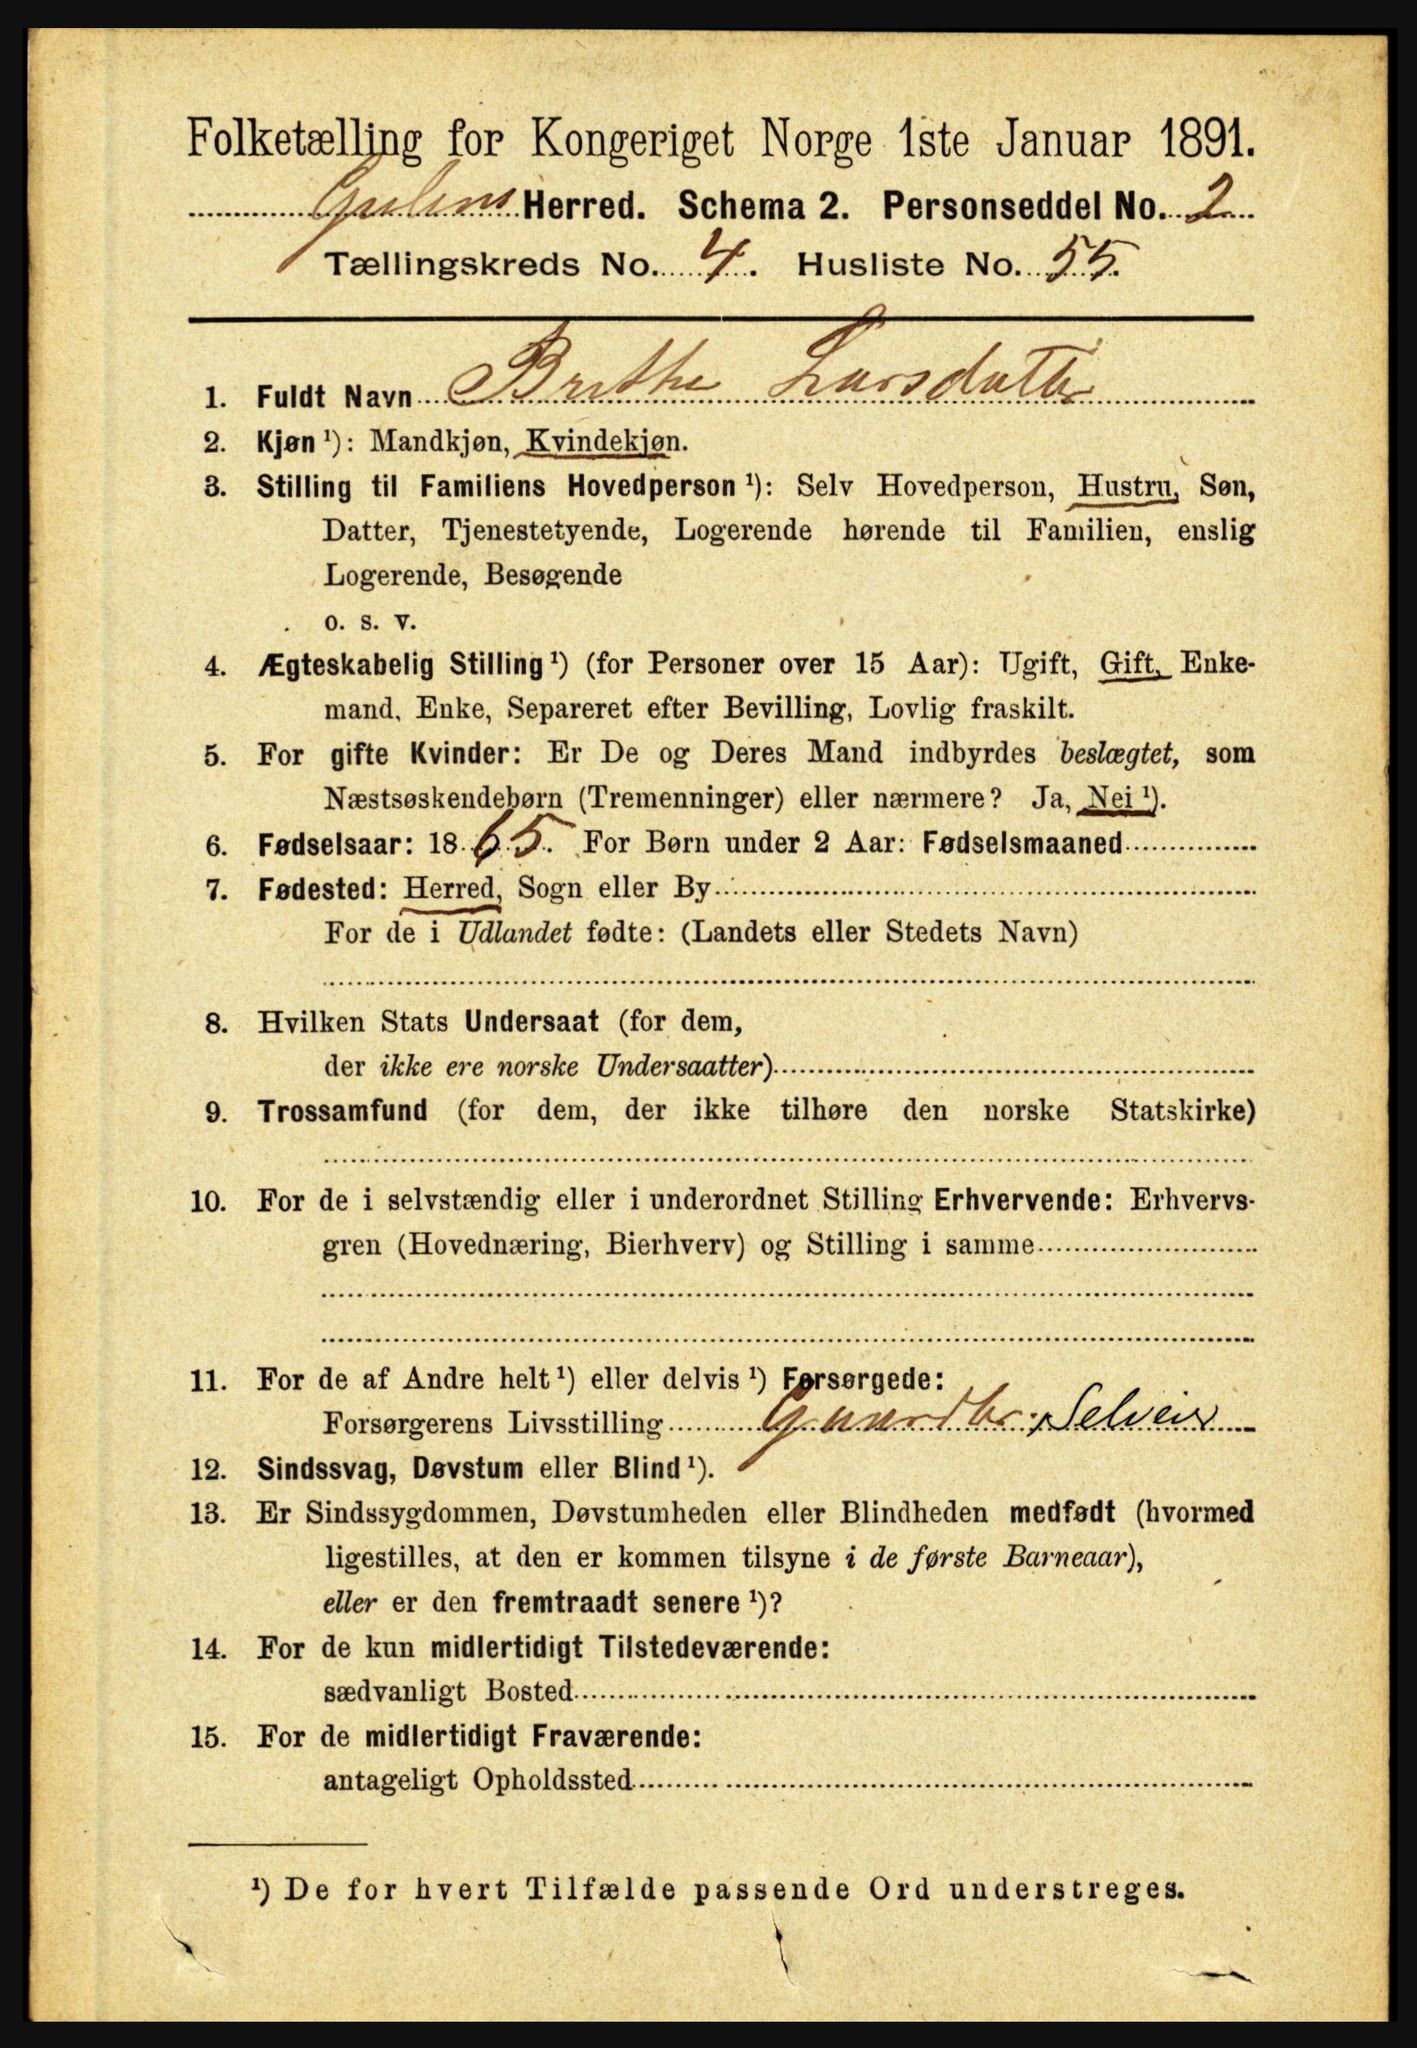 Folketælling for Kongeriget Norge 1ste Januar 1891.
Gulens Herred. Schema 2. Personseddel No. 2
Tællingskreds No. 4. Husliste No. 55.
1. Fuldt Navn Brithe Larsdatter
2. Kjøn ¹): Mandkjøn, Kvindekjøn.
3. Stilling til Familiens Hovedperson ¹): Selv Hovedperson, Hustru, Søn,
Datter, Tjenestetyende, Logerende hørende til Familien, enslig
Logerende, Besøgende
o. s. v.
4. Ægteskabelig Stilling ¹) (for Personer over 15 Aar): Ugift, Gift, Enke-
mand, Enke, Separeret efter Bevilling, Lovlig fraskilt.
5. For gifte Kvinder: Er De og Deres Mand indbyrdes beslægtet, som
Næstsøskendebørn (Tremenninger) eller nærmere? Ja, Nei ¹).
6. Fødselsaar: 1865. For Børn under 2 Aar: Fødselsmaaned
7. Fødested: Herred, Sogn eller By
For de i Udlandet fødte: (Landets eller Stedets Navn)
8. Hvilken Stats Undersaat (for dem,
der ikke ere norske Undersaatter)
9. Trossamfund (for dem, der ikke tilhøre den norske Statskirke)
10. For de i selvstændig eller i underordnet Stilling Erhvervende: Erhvervs-
gren (Hovednæring, Bierhverv) og Stilling i samme
11. For de af Andre helt ¹) eller delvis ¹) Forsørgede:
Forsørgerens Livsstilling Gaardbr. Selveier
12. Sindssvag, Døvstum eller Blind ¹).
13. Er Sindssygdommen, Døvstumheden eller Blindheden medfødt (hvormed
ligestilles, at den er kommen tilsyne i de første Barneaar),
eller er den fremtraadt senere ¹)?
14. For de kun midlertidigt Tilstedeværende:
sædvanligt Bosted
15. For de midlertidigt Fraværende:
antageligt Opholdssted
¹) De for hvert Tilfælde passende Ord understreges.